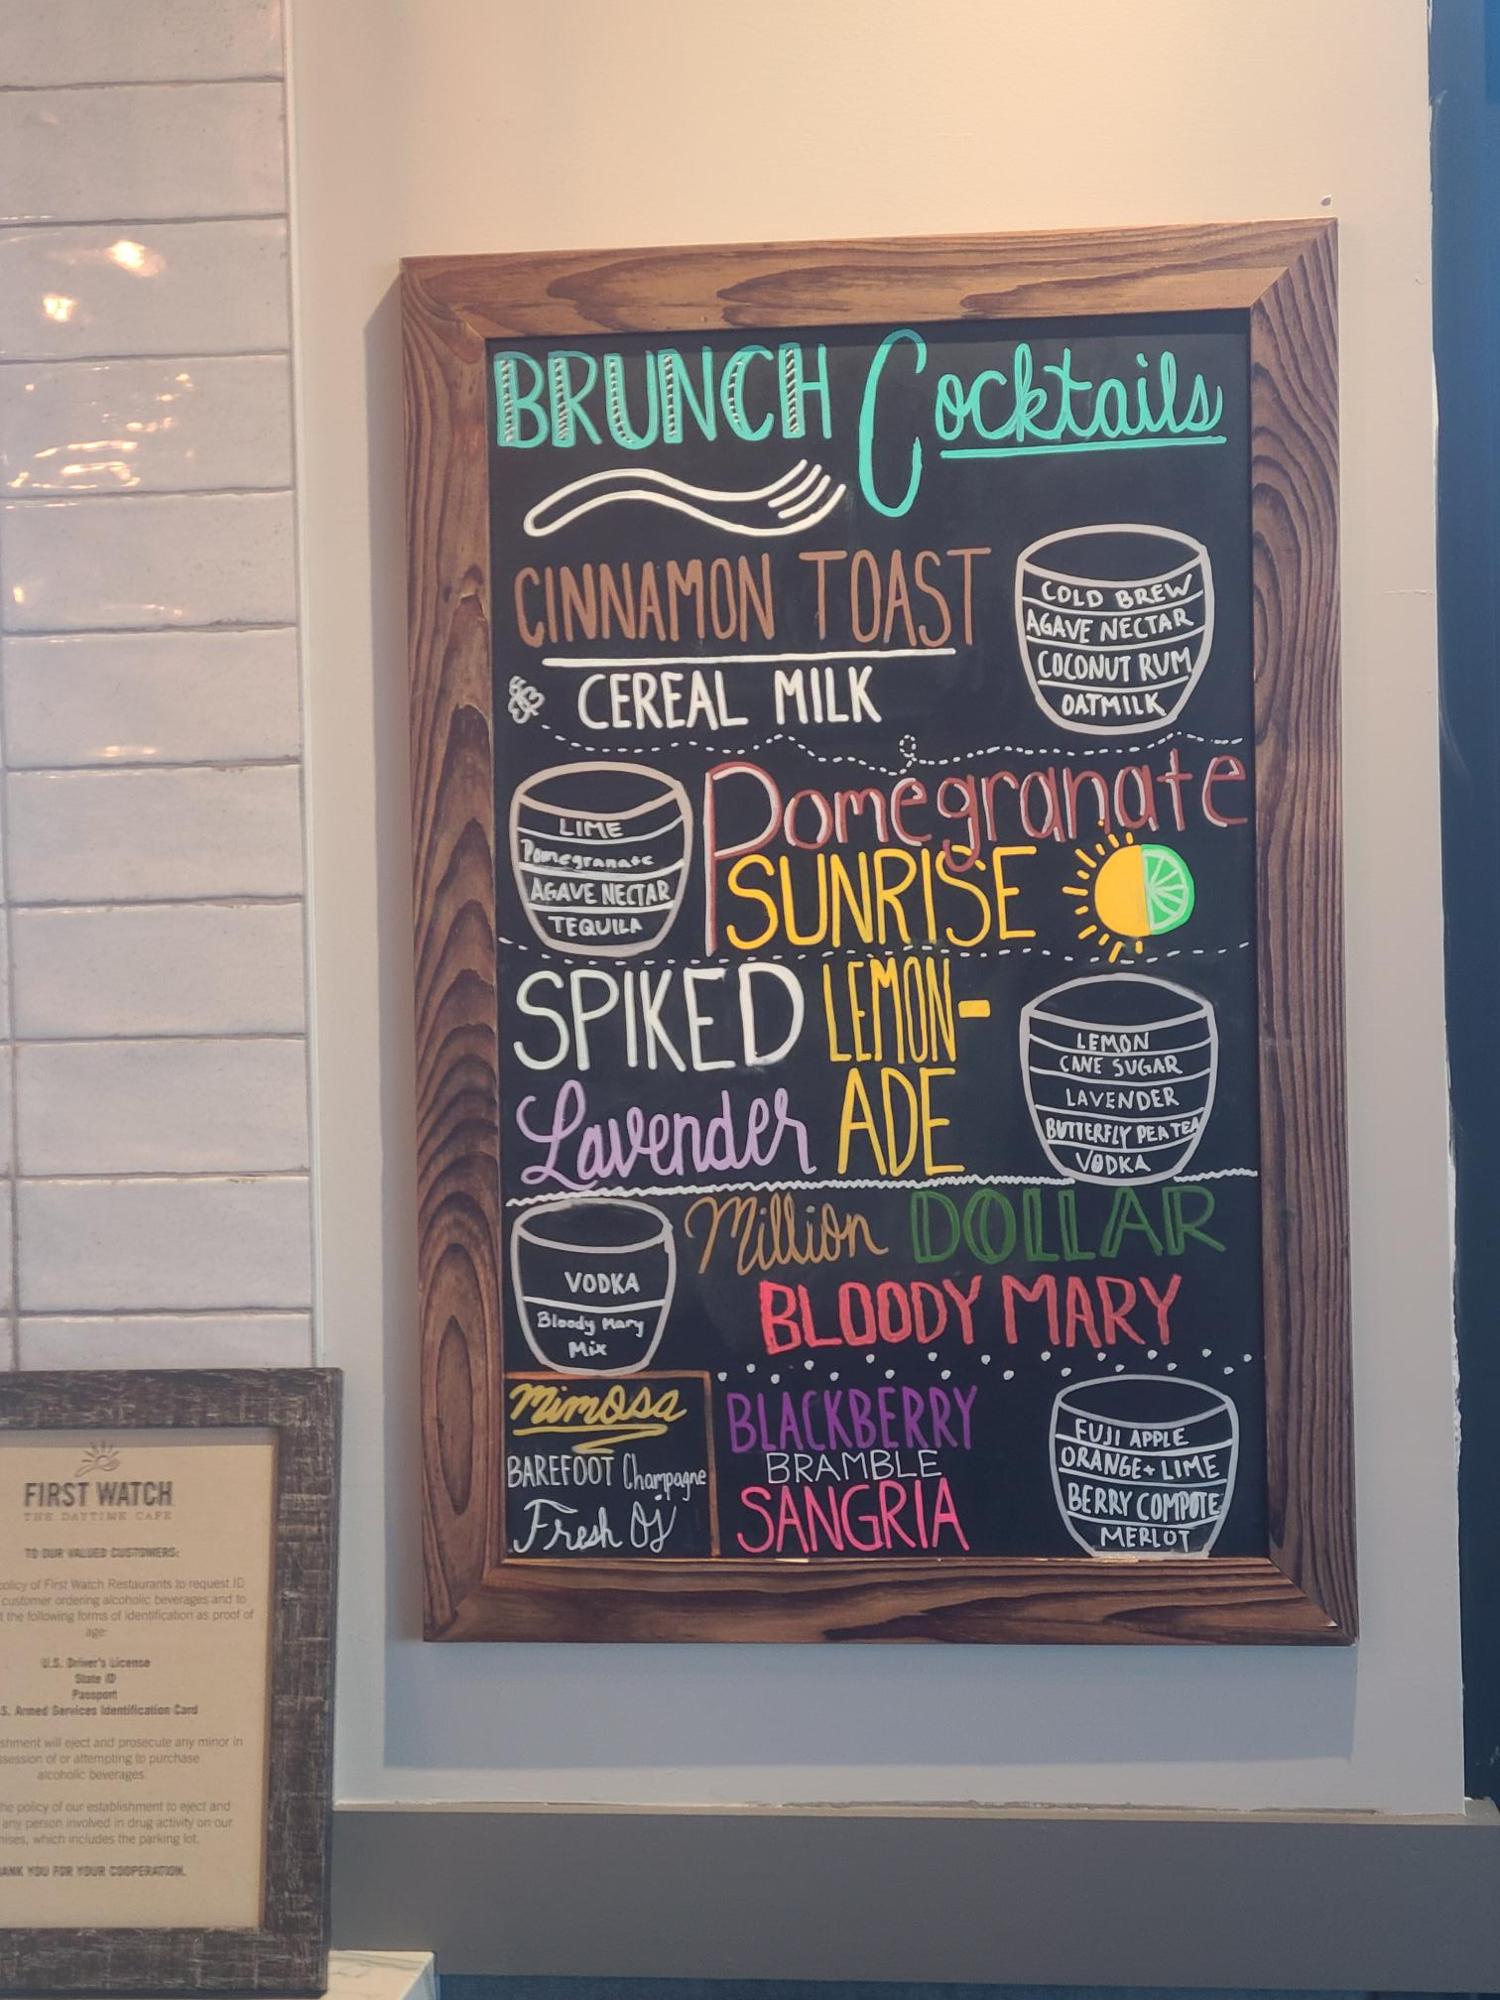 BRUNCH Cocktails
CINNAMON TOAST
CEREAL MILK
COLD BREW
AGAVE NECTAR
COCONUT RUM
OATMILK
LIME
Pomegranate
AGAVE NECTAR
TEQUILA
Pomegranate
SUNRISE
SPIKED LEMON-
Lavender ADE
LEMON
CANE SUGAR
LAVENDER
BUTTERFLY PEA TEA
VODKA
VODKA
Bloody Mary
Mix
Million DOLLAR
BLOODY MARY
Mimosa
BAREFOOT Champagne
Fresh OJ
BLACKBERRY
BRAMBLE
SANGRIA
FUJI APPLE
ORANGE + LIME
BERRY COMPOTE
MERLOT
FIRST WATCH
THE DAYTIME CAFE
TO OUR VALUED CUSTOMERS:
policy of First Watch Restaurants to request ID
customer ordering alcoholic beverages and to
the following forms of identification as proof of
age:
U.S. Driver's License
State ID
Passport
S. Armed Services Identification Card
shment will eject and prosecute any minor in
session of or attempting to purchase
alcoholic beverages.
he policy of our establishment to eject and
any person involved in drug activity on our
mises, which includes the parking lot.
ANK YOU FOR YOUR COOPERATION.